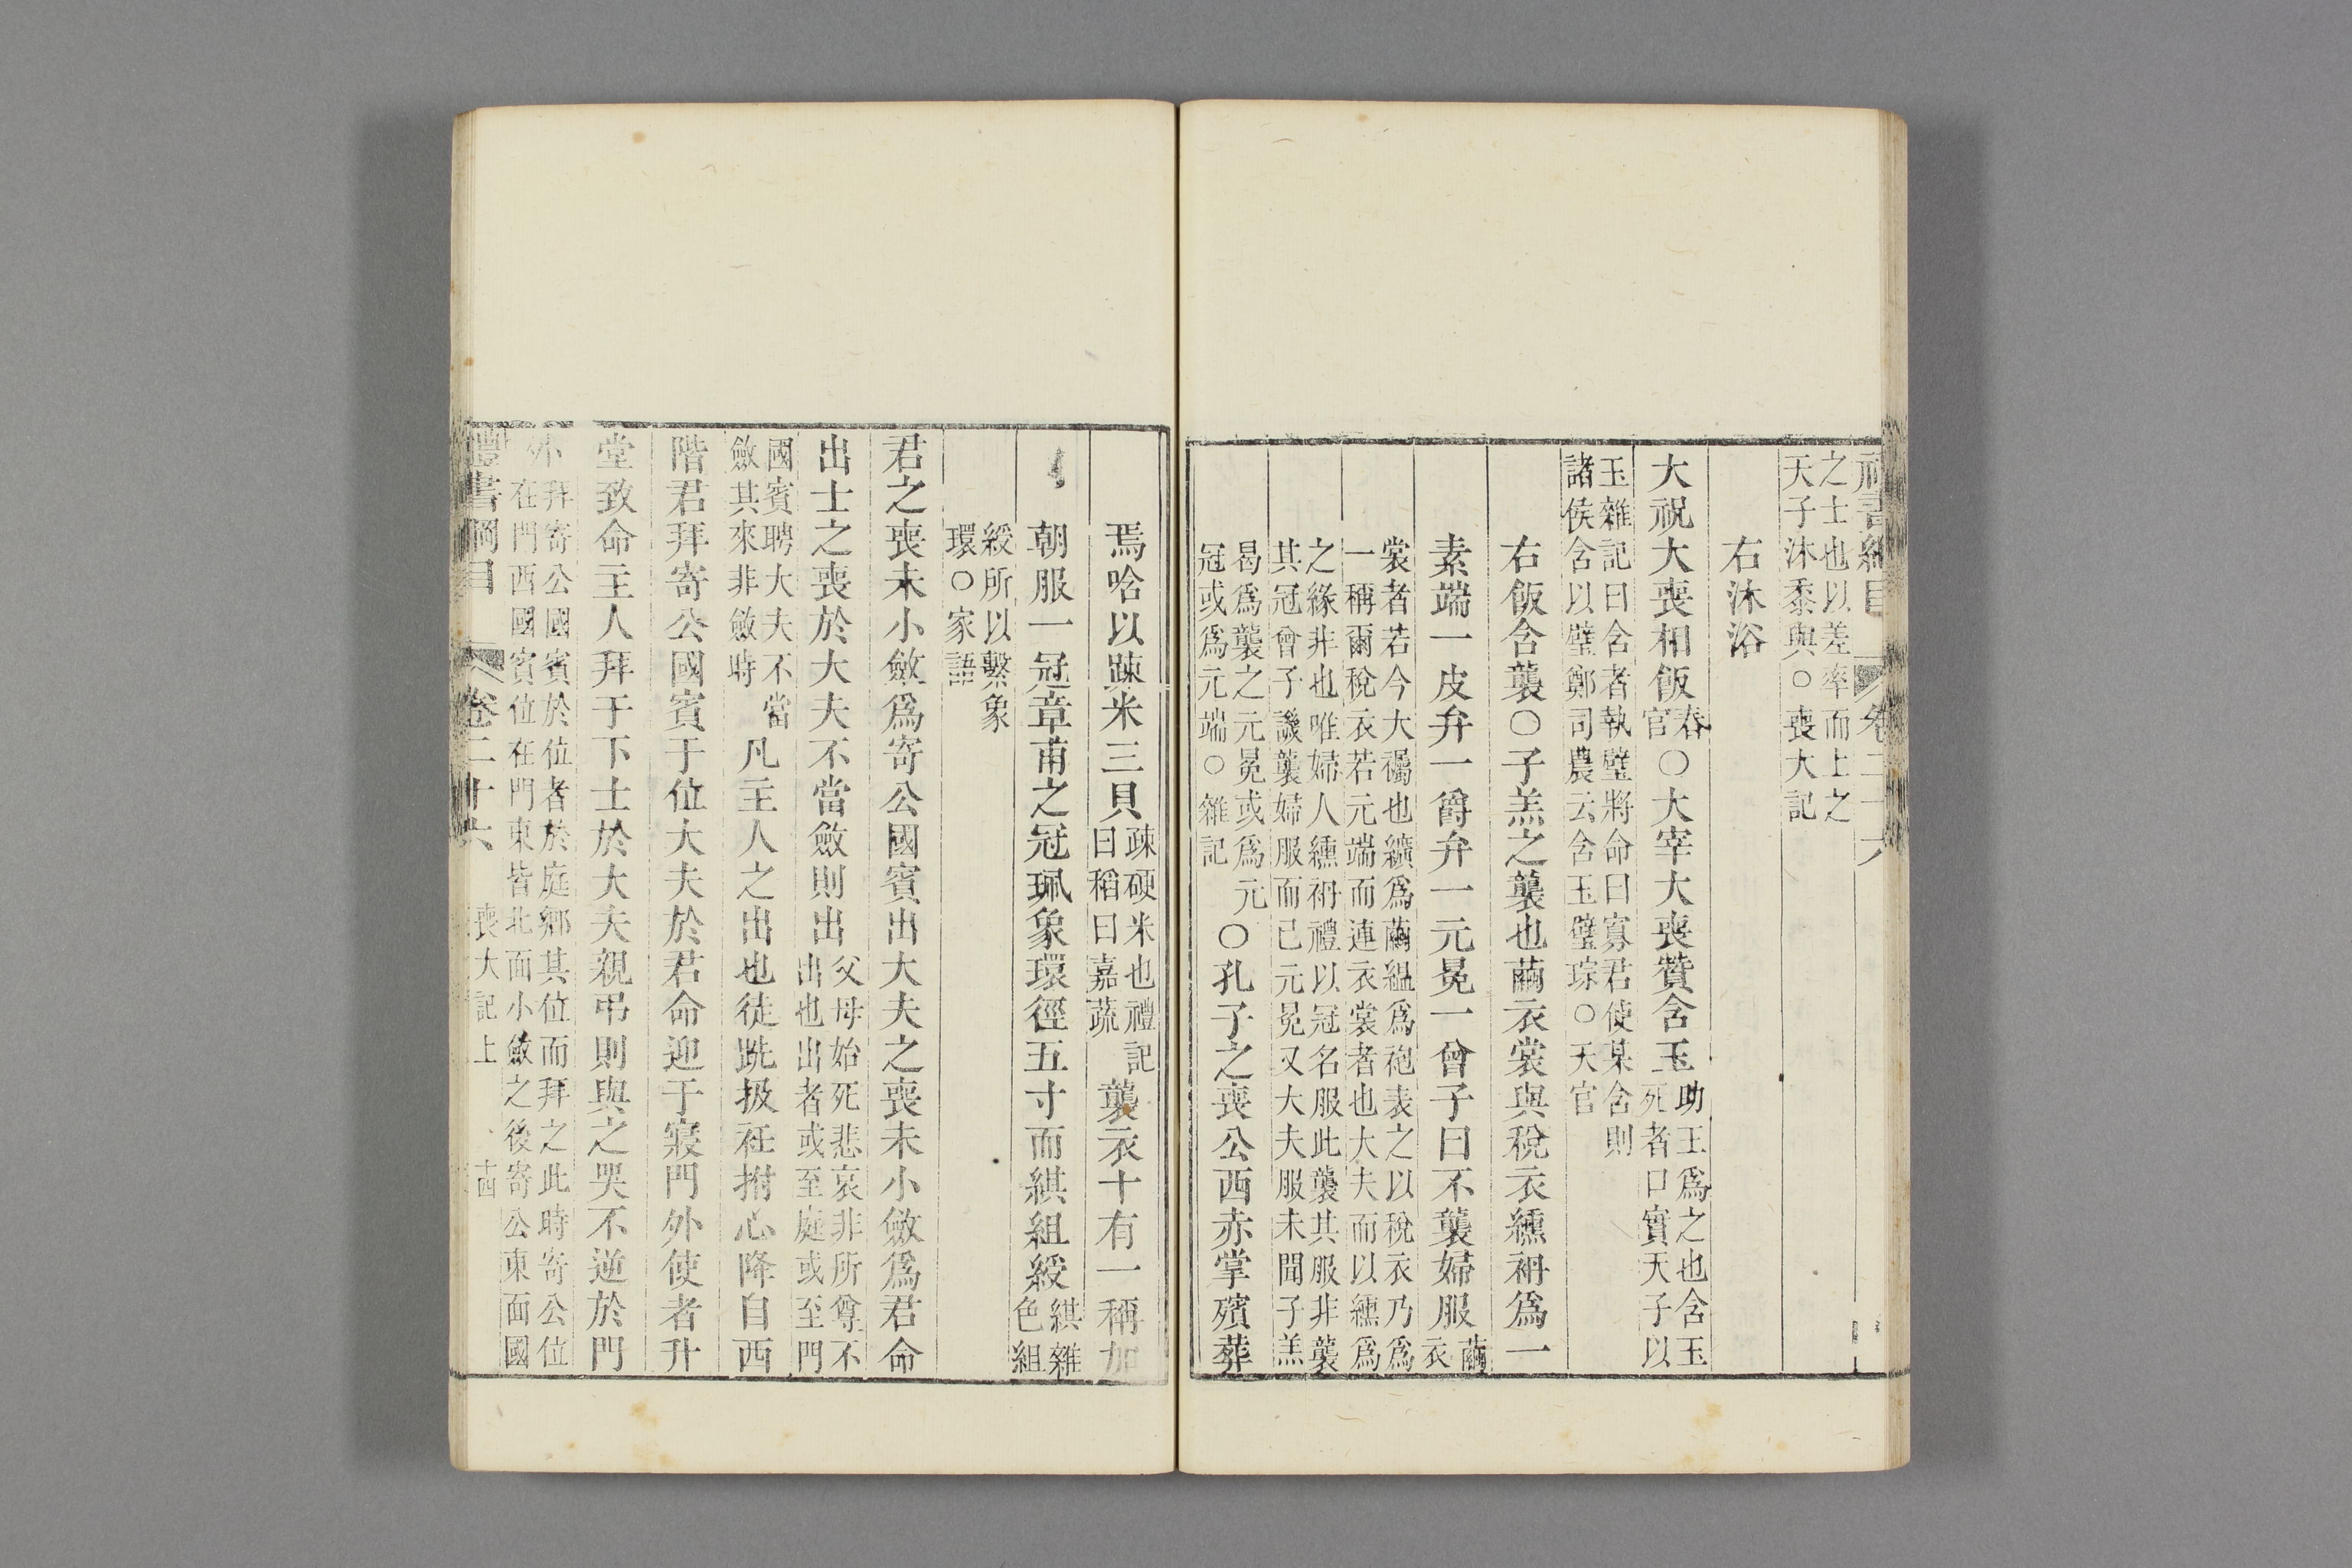 禮書綱目 卷二十六
之士也以差率而上之
天子沐黍與○喪大記
右沐浴
大祝大喪相飯春官○大宰大喪贊含玉助王爲之也含玉死者口實天子以
玉雜記曰含者執璧將命曰寡君使某含則
諸侯含以璧鄭司農云含玉璧琮○天官
右飯含襲○子羔之襲也繭衣裳與稅衣纁袡爲一
素端一皮弁一爵弁一元冕一曾子曰不襲婦服繭衣
裳者若今大襡也纊爲繭縕爲袍表之以稅衣乃爲
一稱爾稅衣若元端而連衣裳者也大夫而以纁爲
之緣非也唯婦人纁袡禮以冠名服此襲其服非襲
其冠曾子譏襲婦服而已元冕又大夫服未聞子羔
曷爲襲之元冕或爲元
冠或爲元端○雜記○孔子之喪公西赤掌殯葬
焉唅以疎米三貝疎硬米也禮記曰稻曰嘉蔬襲衣十有一稱加
朝服一冠章甫之冠珮象環徑五寸而綨組綬綨雜色組
綬所以繫象
環○家語
君之喪未小斂爲寄公國賓出大夫之喪未小斂爲君命
出士之喪於大夫不當斂則出父母始死悲哀非所尊不出也出者或至庭或至門
國賓聘大夫不當
斂其來非斂時凡主人之出也徒跣扱衽拊心降自西
階君拜寄公國賓于位大夫於君命迎于寢門外使者升
堂致命主人拜于下士於大夫親弔則與之哭不逆於門
外拜寄公國賓於位者於庭鄉其位而拜之此時寄公位
在門西國賓位在門東皆北面小斂之後寄公東面國
禮書綱目 卷二十六 喪大記上